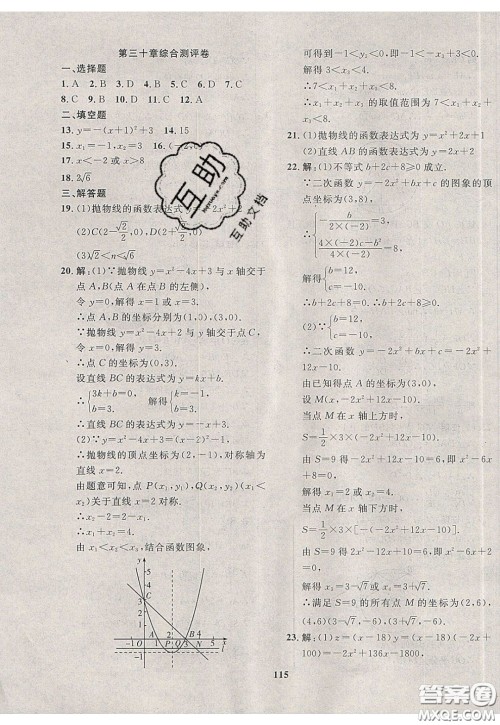 第三十章综合测评卷
一、选择题
1. A  2. B  3. D  4. D  5. D  6. D  7. C
8. C  9. B  10. B  11. C  12. A
二、填空题
13. y=-(x+1)²+3  14. 15
15. x₁=-1, x₂=5  16. (
17. x<-2或x>8
18. 2√6
三、解答题
19. (1)抛物线的函数表达式为y=
(2)C(2-√2/2,0), D(2+√2/2,0)
(3)√2<n<√6
20. 解:(1)∵抛物线y=x²-4x+3与x轴交于
点A,B(点A在点B的左侧),
令y=0,解得x=1或x=3.
∴点A,B的坐标分别为(1,0),(3,0).
∵抛物线y=x²-4x+3与y轴交于点C,
令x=0,解得y=3.
∴点C的坐标为(0,3).
设直线BC的表达式为y=kx+b.
∴{3k+b=0, b=3. 解得{k=-1, b=3.
∴直线BC的表达式为y=-x+3.
(2)∵y=x²-4x+3=(x-2)²-1,
∴抛物线的顶点坐标为(2,-1),对称轴为
直线x=2.
由题意可知,点P(x₁,y₁),Q(x₂,y₂)
关于直线x=2对称.
∴x₂-2=2-x₁.
∴x₁+x₂=4.
由x₁<x₂<x₃,结合函数图象,
y
5
4
3
C
2
1
A
B
N
-1 O 1 2 3 4 5 x
可得到-1<y₃<0,即-1<-x₃+3<0.
解得3<x₃<4.
∴7<x₁+x₂+x₃<8.
∴x₁+x₂+x₃的取值范围为7<x₁+x₂+x₃<8.
21. (1)抛物线的函数表达式为y=x²+2x+1
(2)直线AB的函数表达式为y=2x+2
22. 解:(1)不等式b+2c+8≥0成立.
∵二次函数y=-2x²+bx+c的图象的顶
点坐标为(3,8),
∴{-b/(2×(-2))=3, (4×(-2)c-b²)/(4×(-2))=8.
解得{b=12, c=-10.
∴b+2c+8≥0.
(2)∵{b=12, c=-10.
∴二次函数y=-2x²+12x-10.
由已知得点A的坐标为
设M(x,-2x²+12x-10).
当点M在x轴上方时,
S=1/2×3×(-2x²+12x-10).
由S=9得-2x²+12x-10=6.
解得x₁=2,x₂=4.
当点M在x轴下方时,
S=1/2×3×[-(-2x²+12x-10)].
由S=9得-2x²+12x-10=-6.
解得x₃=3-√7,x₄=3+√7.
∴满足S=9的所有点M的坐标为(2,6),
(4,6),(3-√7,-6),(3+√7,-6).
23. 解:(1)z=(x-18)y=(x-18)(-2x+100)
=-2x²+136x-1800.
115
互助
互助文档
答案圈
MXQE.COM